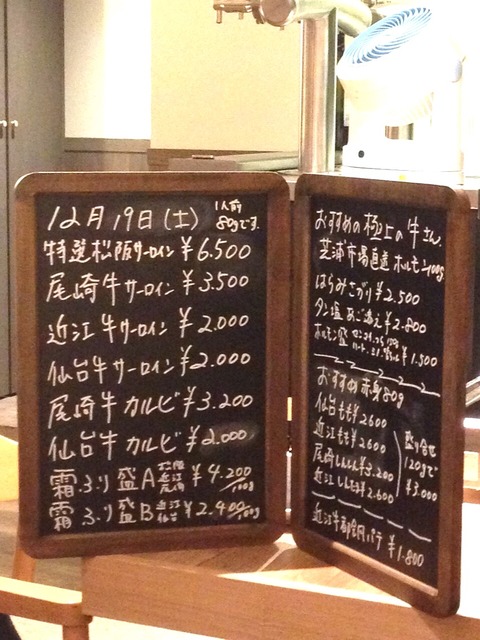 12月19日(土) 1人前 80gです
特選松阪サーロイン ¥6.500
尾崎牛サーロイン ¥3.500
近江牛サーロイン ¥2.000
仙台牛サーロイン ¥2.000
尾崎牛カルビ ¥3.200
仙台牛カルビ ¥2.000
霜ふり盛A 松阪 近江 尾崎 ¥4.200/100g
霜ふり盛B 近江 仙台 ¥2.400/100g
おすすめの極上の牛さん
芝浦市場直送ホルモン100g
はらみさがり ¥2.500
タン塩あご添え ¥2.800
ホルモン盛 ¥1.500
おすすめ赤身80g
仙台もも ¥2600
近江もも ¥2600
尾崎しんしん ¥3.200
近江しんしん ¥2.600
盛り合せ
120gで
¥3.000
近江牛 パテ ¥1.800